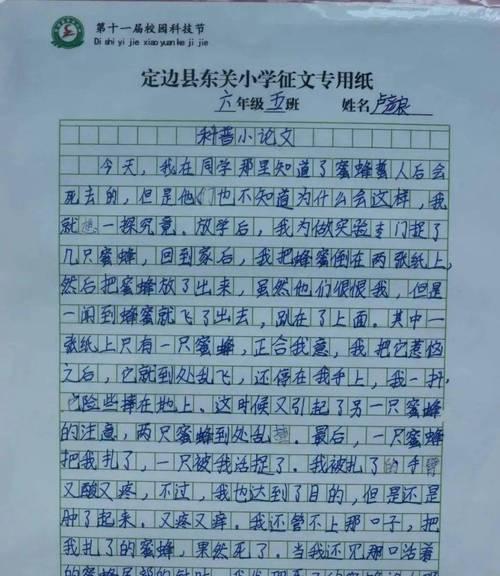 第十一届校园科技节
Di shi yi jie xiao yuan ke ji jie
定边县东关小学征文专用纸
六年级五班 姓名卢良
科普小论文
今天，我在同学那里知道了蜜蜂蜇人后会
死去的，但是他们也不知道为什么会这样，我
就想一探究竟。放学后，我为做实验专门捉了
几只蜜蜂，回到家后，我把蜂蜜倒在两张纸上，
然后把蜜蜂放了出来，虽然他们很恨我，但是
一闻到蜂蜜就飞了出去，趴在了上面。其中一
张纸上只有一只蜜蜂，正合我意，我把它惹恼
之后，它就到处乱飞，还停在我手上，我一抖，
它险些摔在地上。这时候又引起了另一只蜜蜂
的注意，两只蜜蜂到处乱撞。最后，一只蜜蜂
把我扎了，一只被我活捉了。我被扎了的手臂
又酸又疼，不过，我也达到了目的，但是还是
肿了起来。又疼又痒。我还管不上那口子，把
我扎了的蜜蜂，果然死了。当我还见那口沾着
的蜜蜂尾部的针时，我发现了的蜜蜂